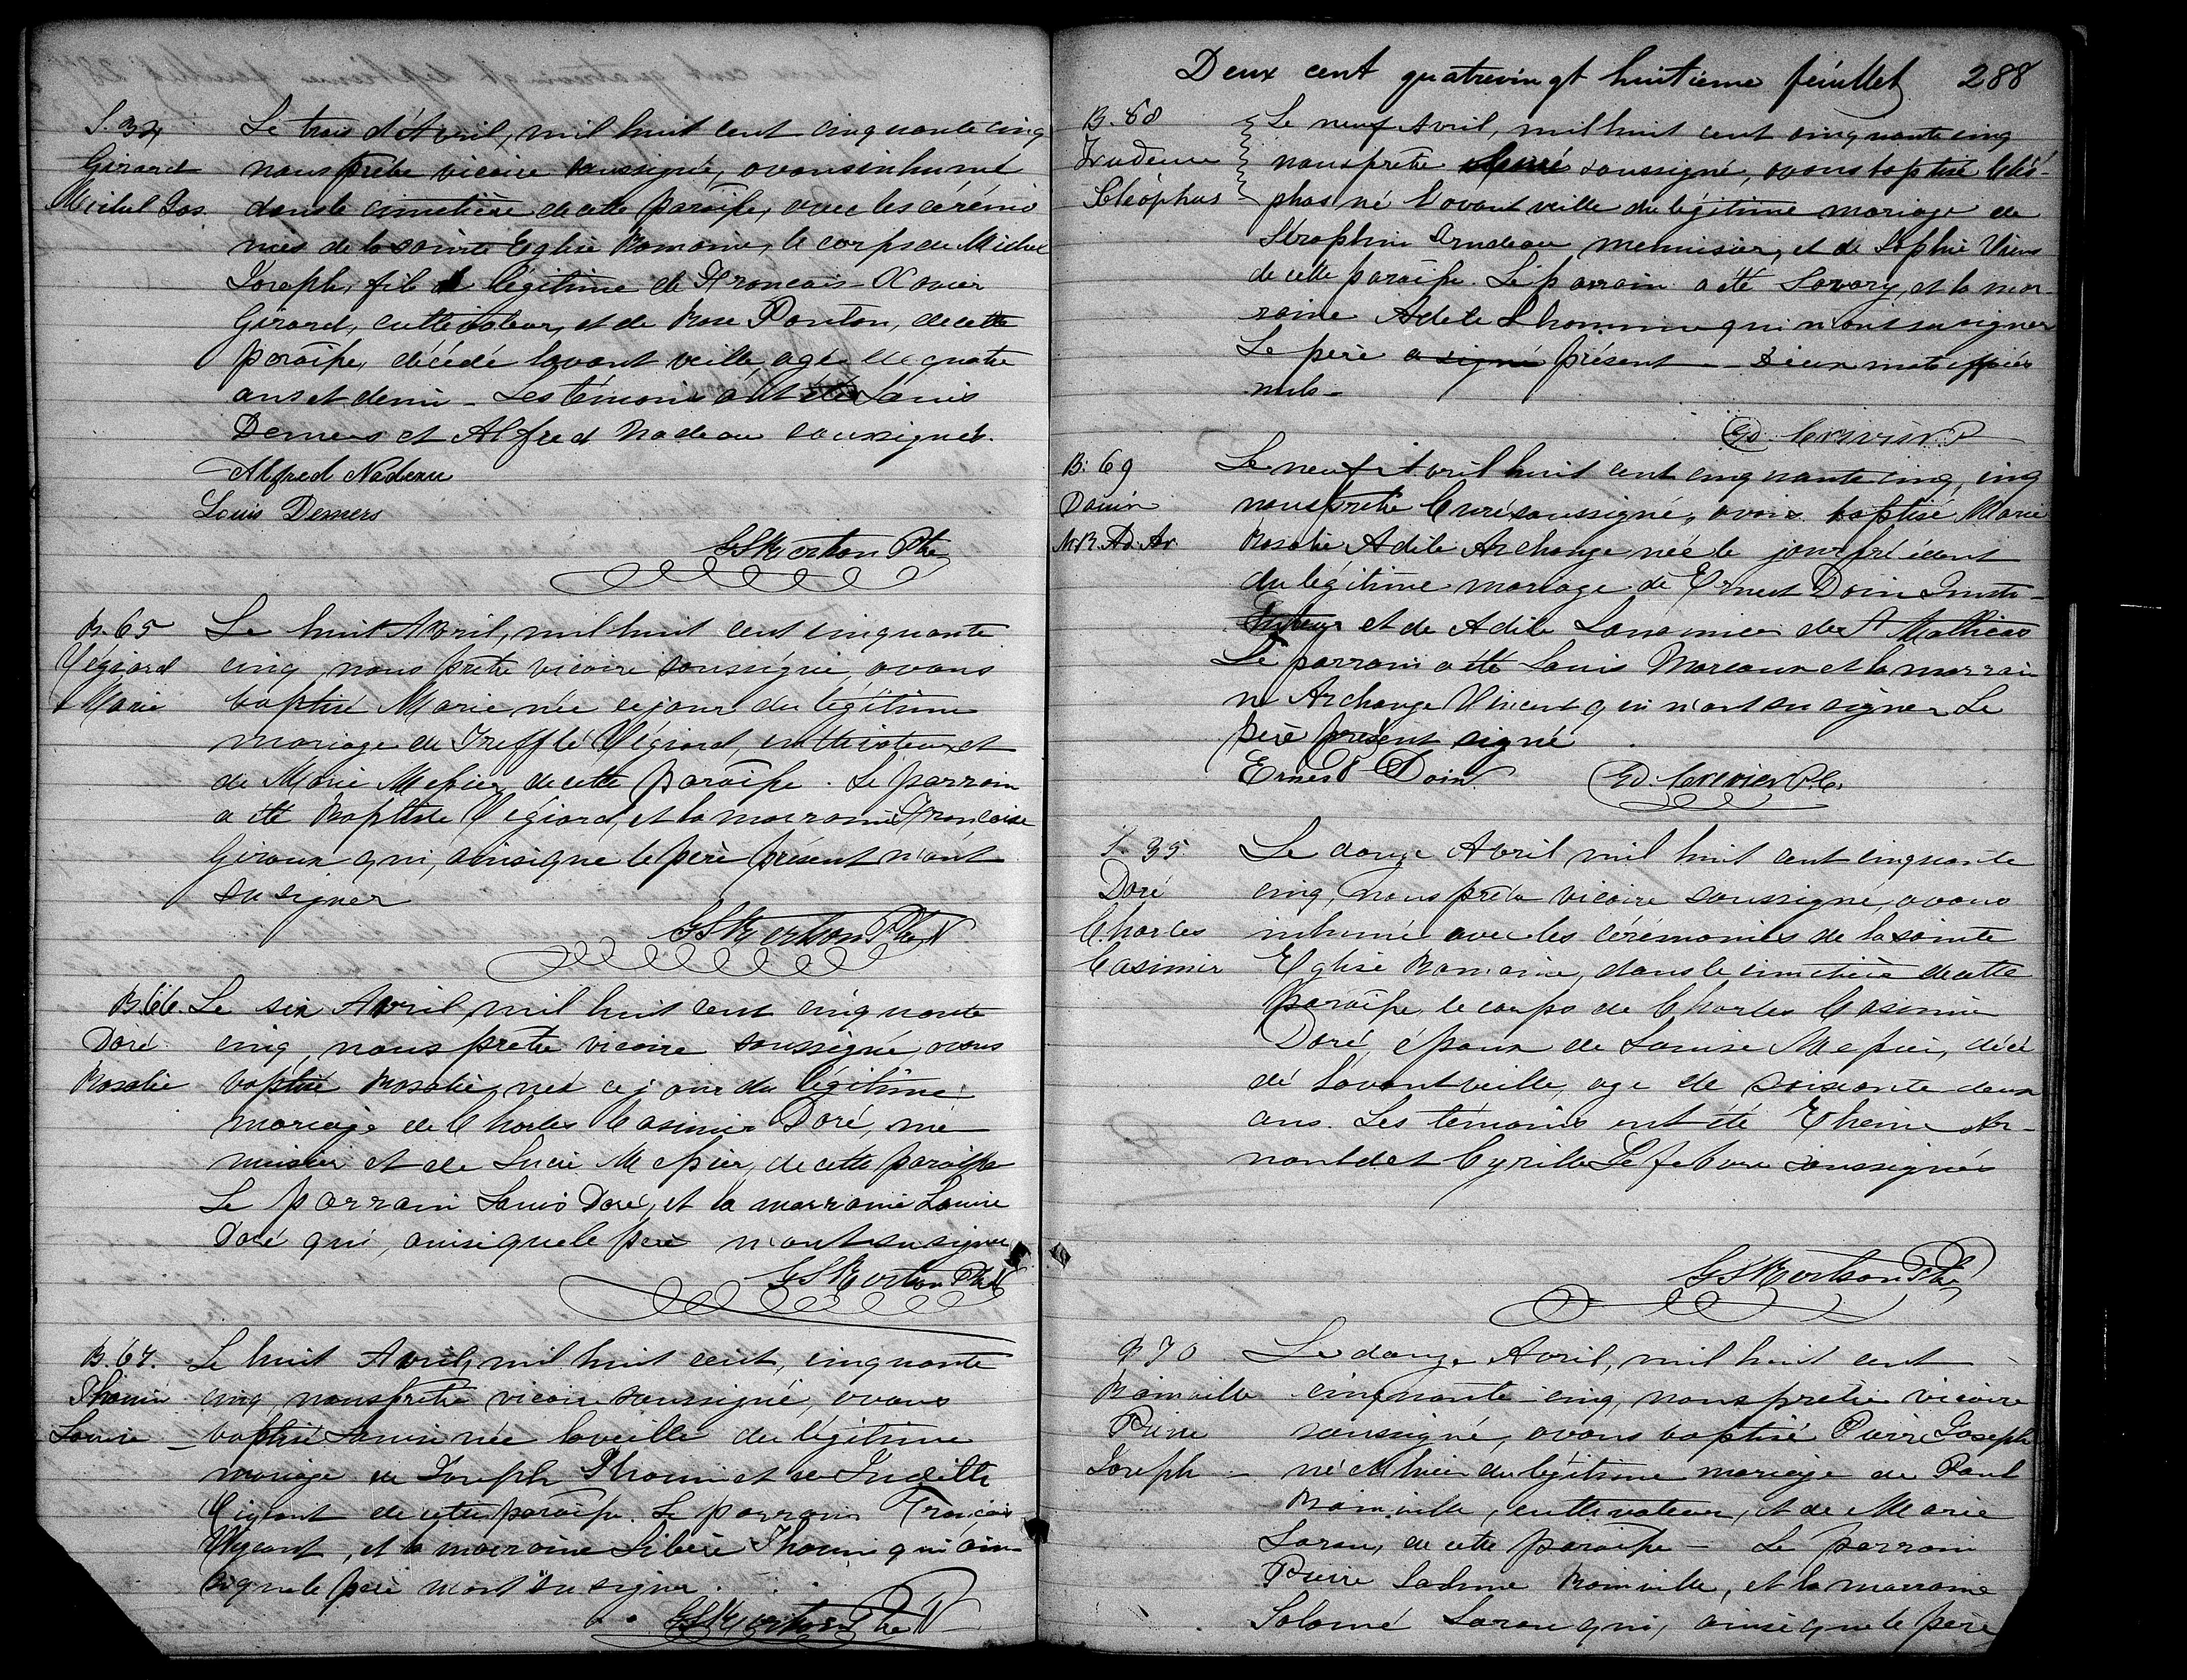 S. 34
Girard
Michel Jos.
Le trois d'Avril, mil huit cent cinquante cinq
nous prêtre vicaire soussigné, avons inhumé
dans le cimetière de cette paroisse, avec les cérémo
nies de la sainte Eglise Romaine, le corps de Michel
Joseph, fils légitime de François-Xavier
Girard, cultivateur, et de Rose Ponton, de cette
paroisse, décédé l'avant veille, agé de quatre
ans et demi - Les témoins ont été Louis
Demers et Alfred Nadeau soussignés.
Alfred Nadeau
Louis Demers
GS Kertson Ptre
B. 65
Végiard
Marie
Le huit Avril, mil huit cent cinquante
cinq, nous prêtre vicaire soussigné, avons
baptisé Marie née ce jour du légitime
mariage de Trefflé Végiard, cultivateur et
de Marie Messier, de cette paroisse. Le parrain
a été Baptiste Végiard, et la marraine Françoise
Giroux qui, ainsi que le père présent n'ont
su signer
GS Kertson Ptre V
B. 66.
Doré
Rosalie
Le six Avril, mil huit cent cinquante
cinq, nous prêtre vicaire soussigné, avons
baptisé Rosalie, née ce jour du légitime
mariage de Charles Casimir Doré, me
nuisier et de Lucie Messier, de cette paroisse
Le parrain Louis Doré, et la marraine Louise
Doré qui, ainsi que le père n'ont su signer
GS Kertson Ptre V
B. 67.
Thouin
Louise
Le huit Avril, mil huit cent, cinquante
cinq, nous prêtre vicaire soussigné, avons
baptisé Louise née la veille du légitime
mariage de Joseph Thouin et de Judith
Vigeant de cette paroisse. Le parrain François
Vigeant, et la marraine Libère Thouin qui ain-
si que le père n'ont su signer.
GS Kertson Ptre V
Deux cent quatrevingt huitième feuillet 288
B. 68
Trudeau
Cléophas
Le neuf Avril, mil huit cent cinquante cinq
nous prêtre soussigné, avons baptisé Cléo-
phas né l'avant veille du légitime mariage de
Séraphin Trudeau menuisier, et de Sophie Viens
de cette paroisse. Le parrain a été Savary, et la mar-
raine Adèle Lhomme qui n'ont su signer
Le père a signé présent - Deux mots
nuls -
Ed. Crevier P
B. 69
Douin
M.R. Ad. Ar.
Le neuf Avril huit cent cinquante cinq, cinq
nous prêtre Curé soussigné, avons baptisé Marie
Rosalie Adèle Archange née le jour précédent
du légitime mariage de Ernest Doin Insti-
tuteur et de Adèle de St Mathieu
Le parrain a été Louis Marcoux et la marrain
ne Archange Vincent qui n'ont su signer Le
père présent signé
Ernest Doin
Ed. Crevier P.C.
S. 35
Doré
Charles
Casimir
Le douze Avril mil huit cent cinquante
cinq, nous prêtre vicaire soussigné, avons
inhumé avec les cérémonies de la sainte
Eglise Romaine, dans le cimetière de cette
paroisse, le corps de Charles Casimir
Doré, époux de Louise Messier, décé
dé l'avant veille, agé de soixante deux
ans. Les témoins ont été Etienne Ar-
nould et Cyrille Lefebvre soussignés
GS Kertson Ptre
B 70
Rainville
Pierre
Joseph
Le douze Avril, mil huit cent
cinquante-cinq, nous prêtre vicaire
soussigné, avons baptisé Pierre Joseph
né hier du légitime mariage de Paul
Rainville, cultivateur, et de Marie
Sarau, de cette paroisse - Le parrain
Pierre Rainville, et la marraine
Solomé Sarau qui, ainsi que le père